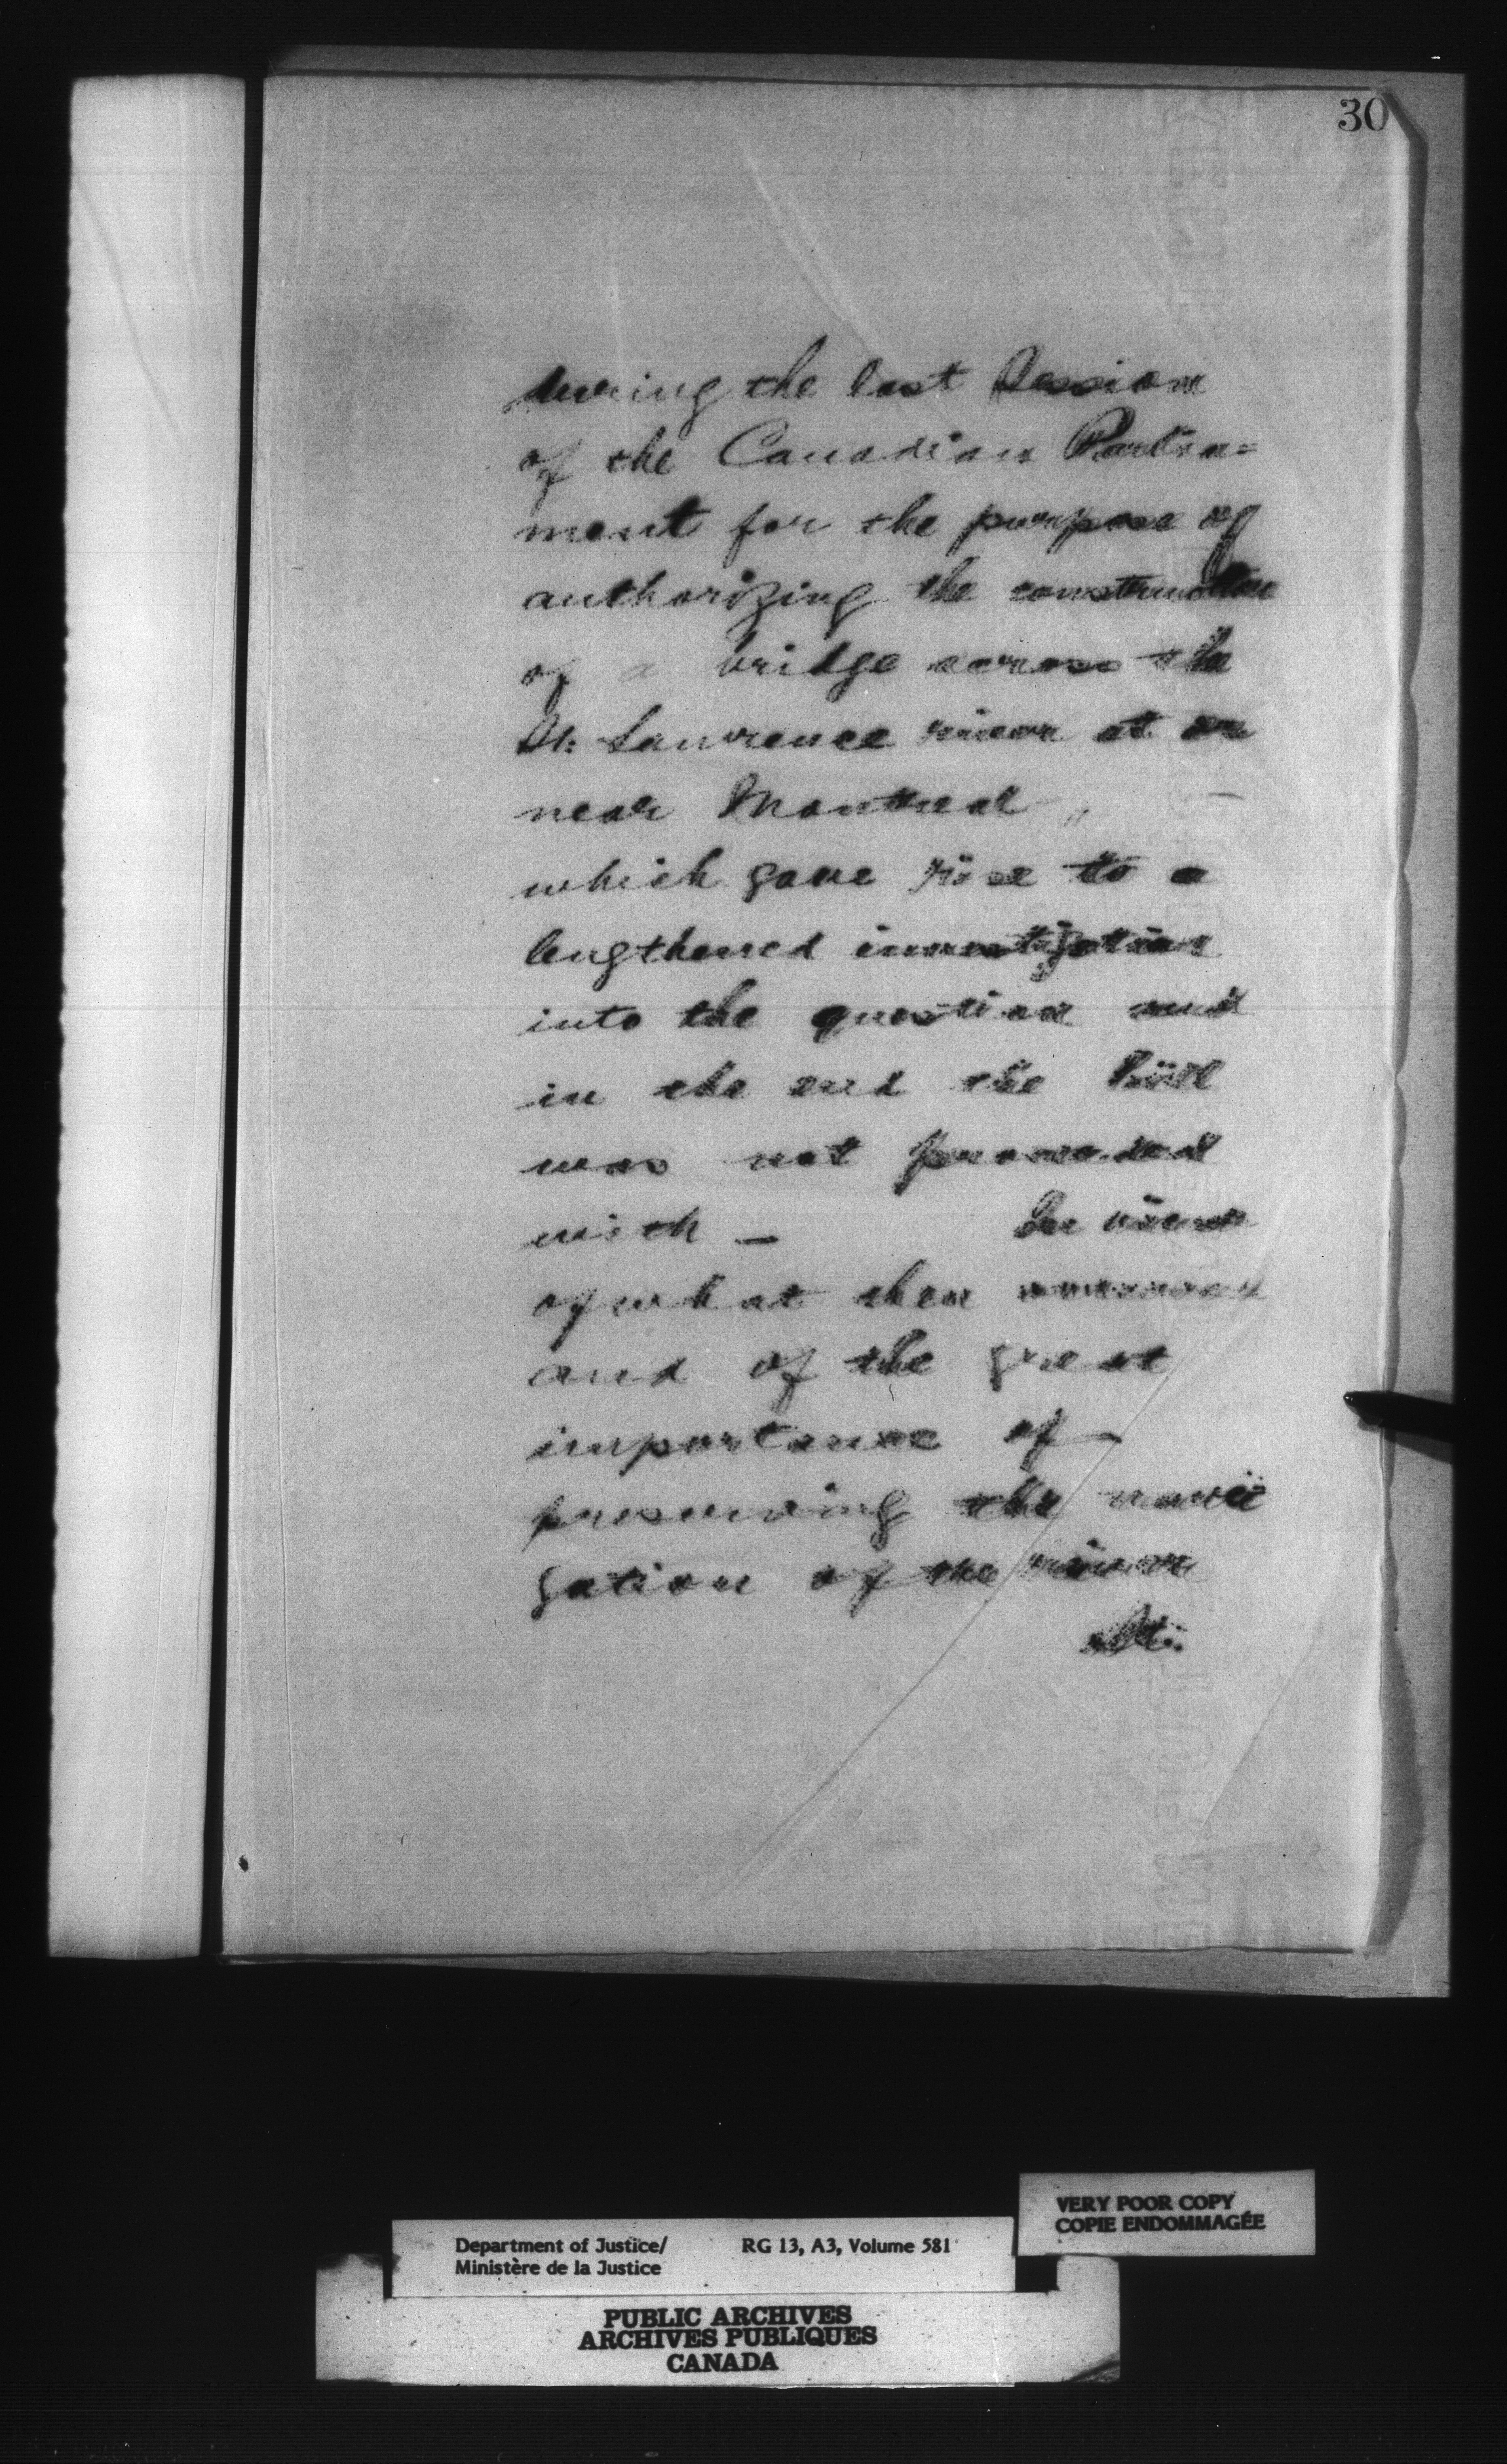 30
during the last Session
of the Canadian Parlia=
ment for the purpose of
authorizing the construction
of a bridge across the
St. Lawrence river at or
near Montreal
which gave rise to a
lengthened investigation
into the question and
in the end the Bill
was not proceeded
with — In view
of what then
and of the great
importance of
preserving the navi
gation of the river
St.
VERY POOR COPY
COPIE ENDOMMAGÉE
Department of Justice/ RG 13, A3, Volume 581
Ministère de la Justice
PUBLIC ARCHIVES
ARCHIVES PUBLIQUES
CANADA